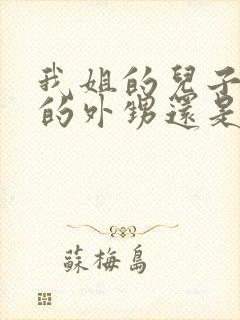 我姐的兒子
的外甥還是
蘇梅島